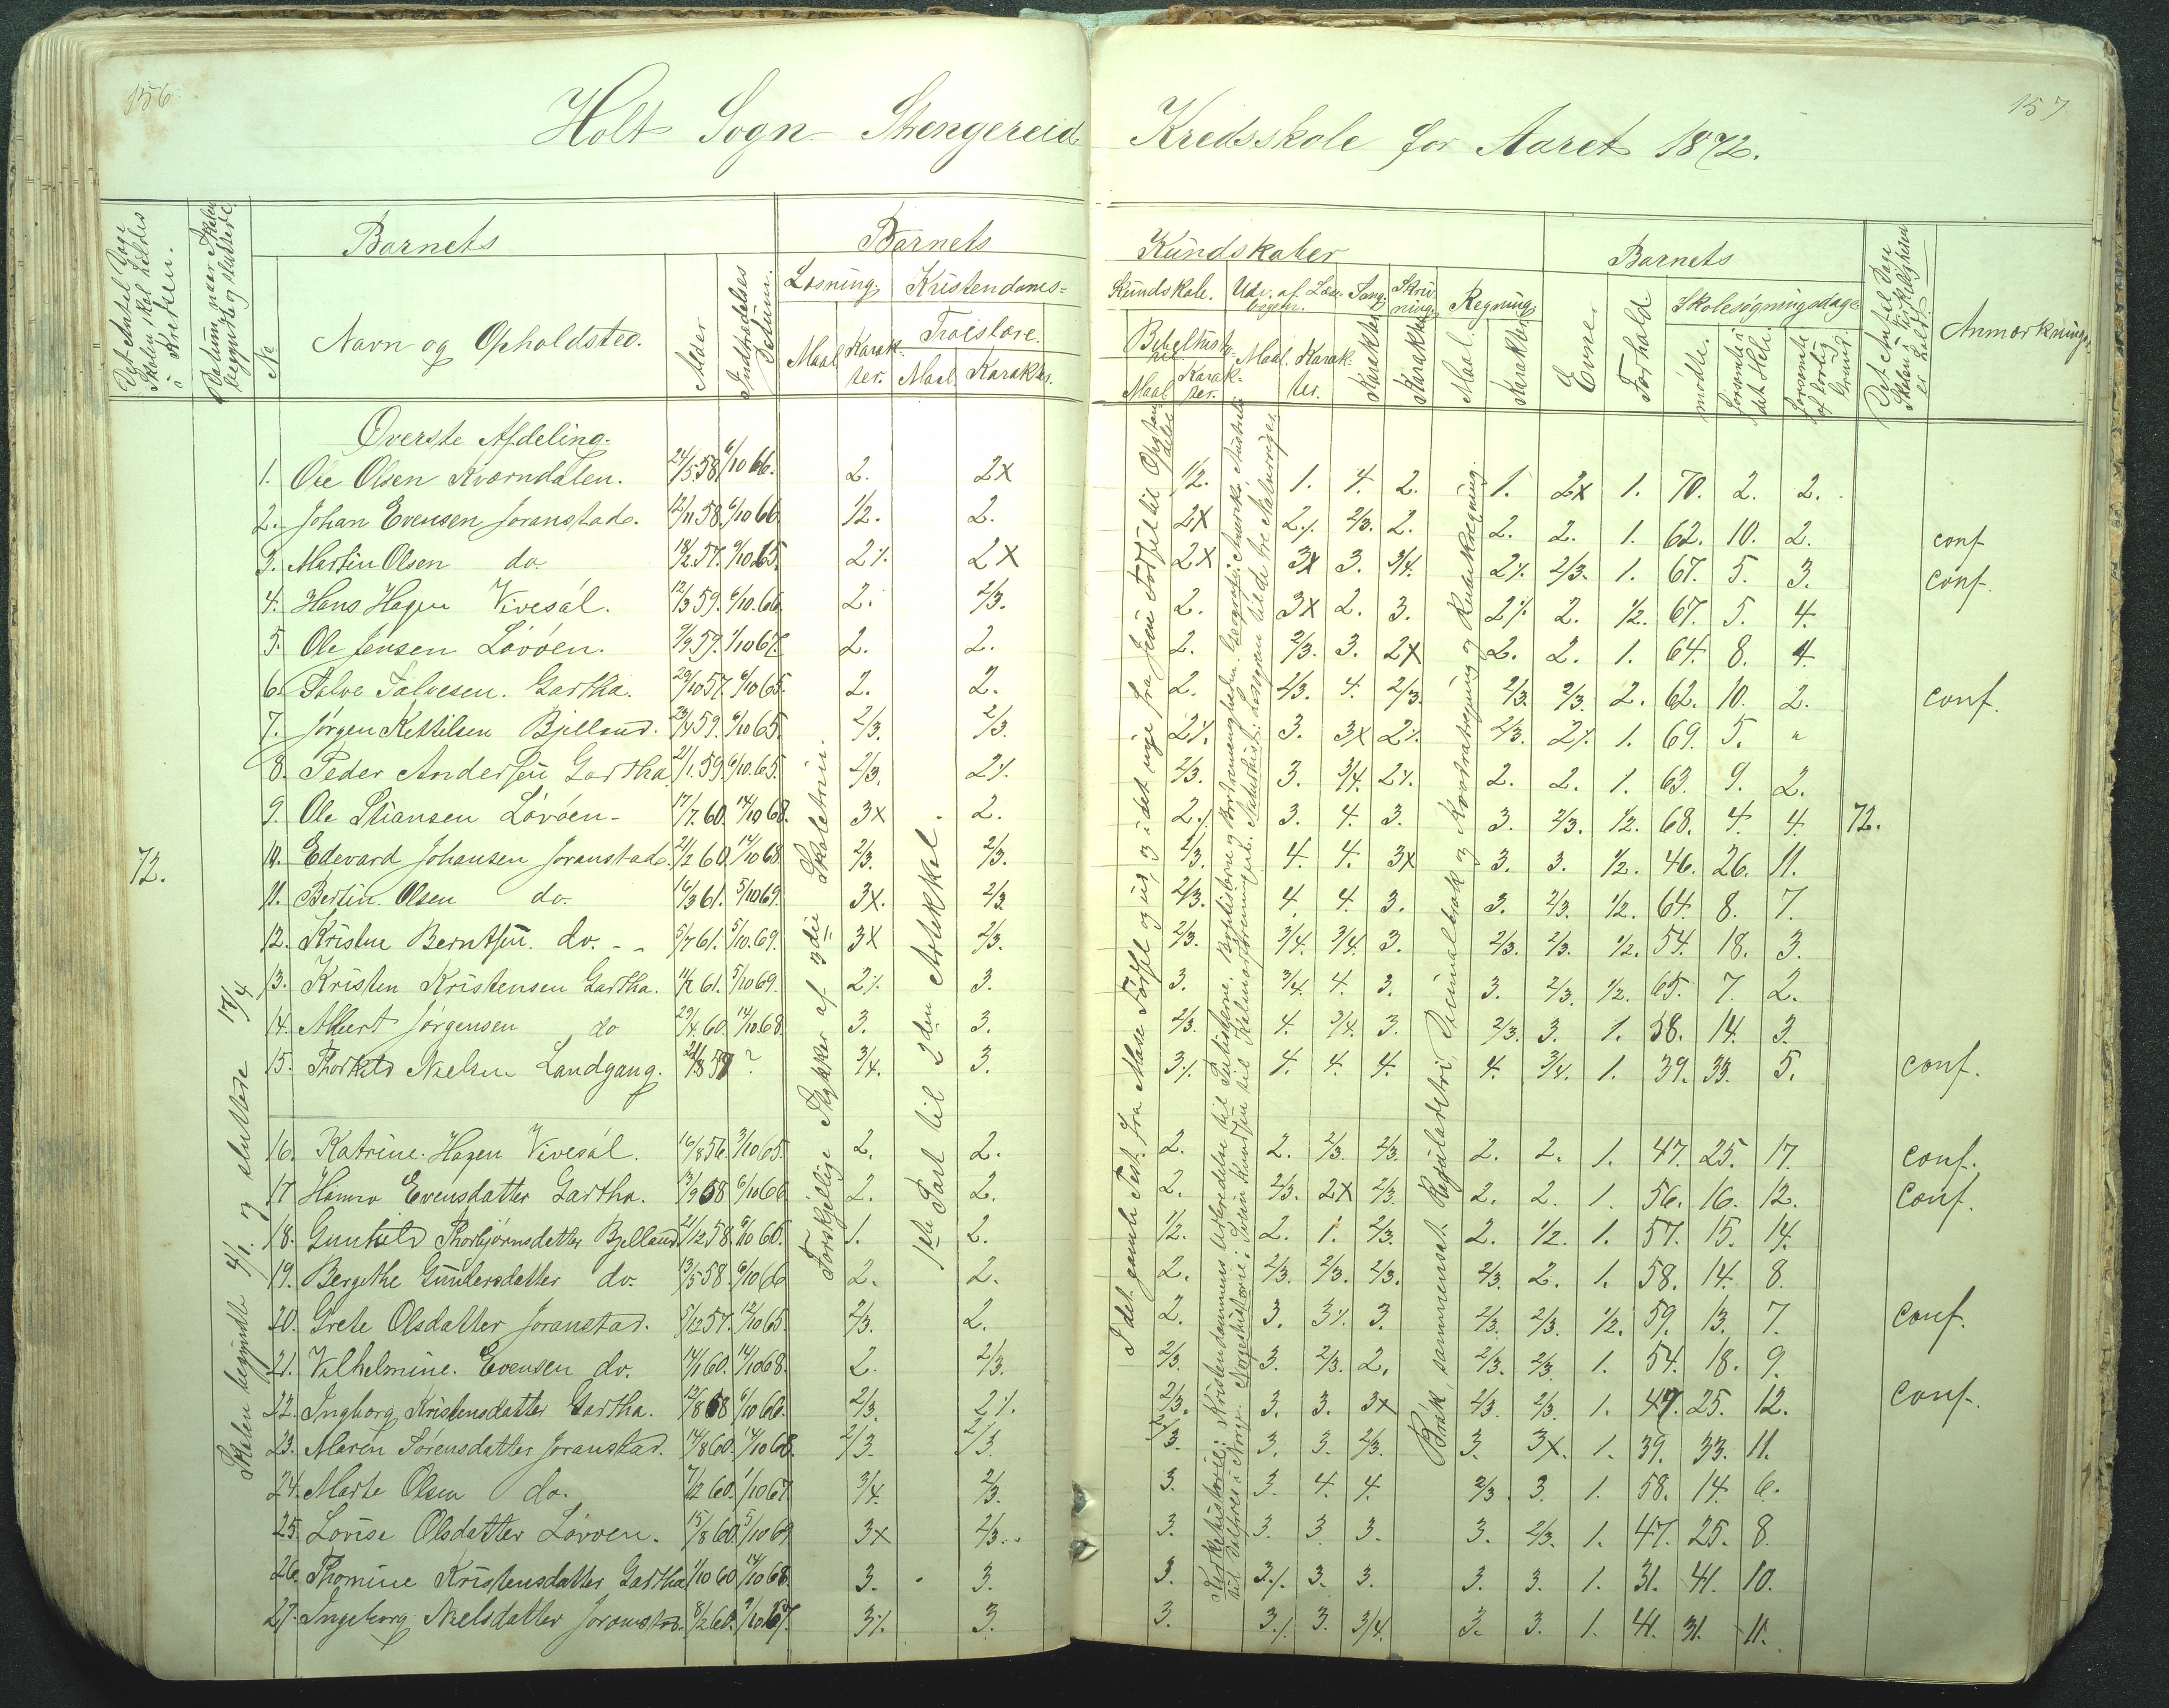 156
157
Holt Sogn Strengereid Kredsskole for Aaret 1872.
Det Antal Dage Skolen skal holdes i Kredsen.
Datum, naar Skolen begynder og slutter.
Barnets
Barnets
Kundskaber
Barnets
Det Antal Dage Skolen i Virkeligheden er holdt.
Anmærkninger
No
Navn og Opholdsted.
Alder
Indtrædelses Datum.
Læsning.
Kristendoms-
Kundskab.
Udv. af Læse-bogen.
Sang.
Skriv-ning.
Regning.
Evne.
Forhold.
Skolesøgningsdage
Maal
Karak-ter.
Troeslære.
Maal.
Karakter.
Bibelhisto-rie
Maal
Karak-ter.
Maal.
Karak-ter.
Karakter
Karakter
Maal.
Karakter
mødte.
forsømte i det Hele.
forsømte af lovlig Grund.
72.
Skolen begyndte 4/1. og sluttede 17/4
Forskjellige Stykker af 3die Skoletrin.
1ste Part til 2den Artikkel.
72.
Øverste Afdeling.
1. Ole Olsen Kværndalen. 24/5 58. 6/10 66. 2. 2x 1/2. 1. 4. 2. 1. 2x 1. 70. 2. 2.
2. Johan Evensen Joranstad. 12/11 58. 6/10 66. 1/2. 2. 2x 2%. 2/3. 2. 2. 2. 1. 62. 10. 2. conf
3. Martin Olsen do. 6/10 65. 2% 2x 2x 3x 3. 3/4. 2% 2/3. 1. 67. 5. 3. conf.
4. Hans Hagen Vivesøl. 12/3 59. 6/10. 66 2. 2/3. 2. 3x 2. 3. 2% 2. 1/2. 67. 5. 4.
5. Ole Jensen Løvøen. 9/9 59. 1/10 67. 2. 2. 2. 2/3. 3. 2x 2. 2. 1. 64. 8. 4
6. Salve Salvesen. Gartha. 29/10 57. 6/10 65. 2. 2. 2. 2/3. 4. 2/3. 2/3. 2/3. 2. 62. 10. 2. conf.
7. Jørgen Kittilsen Bjelland. 23/4 59. 6/10 65. 2/3. 2/3. 2%. 3. 3x 2%. 2/3. 2% 1. 69. 5. "
8. Peder Andersen Gartha 21/1. 59. 6/10. 65. 2/3. 2%. 2/3. 3. 3/4. 2%. 2. 2. 1. 63. 9. 2.
9. Ole Stiansen Løvøen- 17/7. 60. 14/10 68. 3x 2. 2% 3. 4. 3. 3. 2/3. 1/2. 68. 4. 4.
10. Edevard Johansen Joranstad. 21/2 60. 14/10 68. 2/3. 2/3. 2/3. 4. 4. 3x 3. 3. 1/2. 46. 26. 11.
11. Bertin. Olsen do. 16/3 61. 5/10 69. 3x. 2/3 2/3. 4. 4. 3. 3. 2/3. 1/2. 64. 8. 7.
12. Kristen Berntsen. do. 5/7 61. 5/10. 69. 3x 2/3. 2/3. 3/4. 3/4. 3. 2/3. 2/3. 1/2. 54. 18. 3.
13. Kristen Kristensen Gartha. 61. 5/10 69. 2% 3. 3. 3/4. 4. 3. 3. 2/3. 1/2. 65. 7. 2.
14. Albert Jørgensen do 29/4. 60. 14/10. 68. 3. 3. 2/3. 4. 3/4. 3. 2/3. 3. 1. 58. 14. 3.
15. Thorkild Nielsen Landgang. 57 ? 3/4. 3. 3% 4. 4. 4. 4. 3/4. 1. 39. 33. 5. conf.
16. Katrine. Hagen Vivesøl. 16/8 56. 3/10 65. 2. 2. 2. 2. 2/3. 2/3. 2. 2. 1. 47. 25. 17. conf.
17 Hanna Evensdatter Gartha. 13/9 58 6/10 66 2. 2. 2. 2/3. 2x 2/3. 2. 2. 1. 56. 16. 12. conf.
18. Gunhild Thorbjørnsdatter Bjelland 21/12 58. 6/10 66. 1. 2. 1/2. 2. 1. 2/3. 2. 1/2. 1. 57. 15. 14.
19. Bergithe Gundersdatter do. 13/5 58. 6/10 66 2. 2. 2. 2/3. 2/3. 2/3. 2/3. 2. 1. 58. 14. 8.
20. Grete Olsdatter Joranstad. 5/12 57. 12/10 65. 2/3. 2. 2. 3. 3% 3. 2/3. 2/3. 1/2. 59. 13. 7. conf.
21. Vilhelmine. Evensen do. 14/1 60. 14/10 68. 2. 2/3. 2/3. 3. 2/3. 2. 2/3. 2/3. 1. 54. 18. 9.
22. Ingborg Kristensdatter Gartha. 12/8 58 6/10 66. 2/3. 2%. 2/3. 3. 3. 3x 2/3. 2/3. 1. 47. 25. 12. conf.
23. Maren Sørensdatter Joranstad. 14/8 60. 14/10 68. 2/3. 2/3. 2/3. 3. 3. 2/3. 3. 3x. 1. 39. 33. 11.
24. Marte Olsen do. 7/12 60. 1/10 67 3/4. 2/3. 3. 3. 4. 4. 2/3. 3. 1. 58. 14. 6.
25. Lovise Olsdatter Løvøen. 15/8 60. 5/10 69 3x 2/3. 3. 3. 3. 3. 3. 2/3. 1. 47. 25. 8.
26. Thomine Kristensdatter Gartha 1/10 60 14/10 68. 3. 3. 3. 3% 3. 3. 3. 3. 1. 31. 41. 10.
27. Ingeborg Nielsdatter Joranstad. 8/2 60. 67. 3%. 3. 3. 3% 3. 3/4. 3. 3. 1. 41. 31. 11.
I det gamle Test. fra Mose Fødsel og ud, og i det nye fra Jesu Fødsel til Opstandelse
Brøk, sammensat Reguladetri, Decimalbrøk og Kvadratregning og Kubikregning.